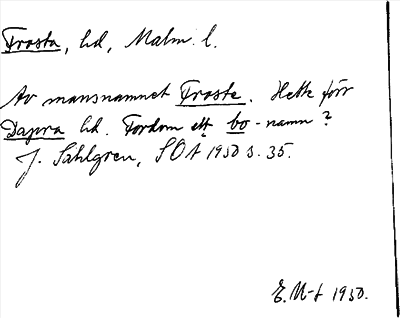 Frosta, hd, Malm. l.
Av mansnamnet Froste. Hette förr
Dapra hd. Fordom ett bo-namn?
J. Sahlgren, SOA 1930 s. 35.
E. M-t 1930.